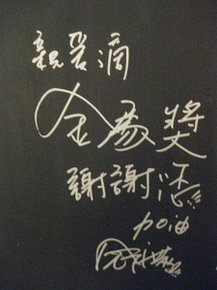 親愛滴
金豪獎
謝謝您
加油